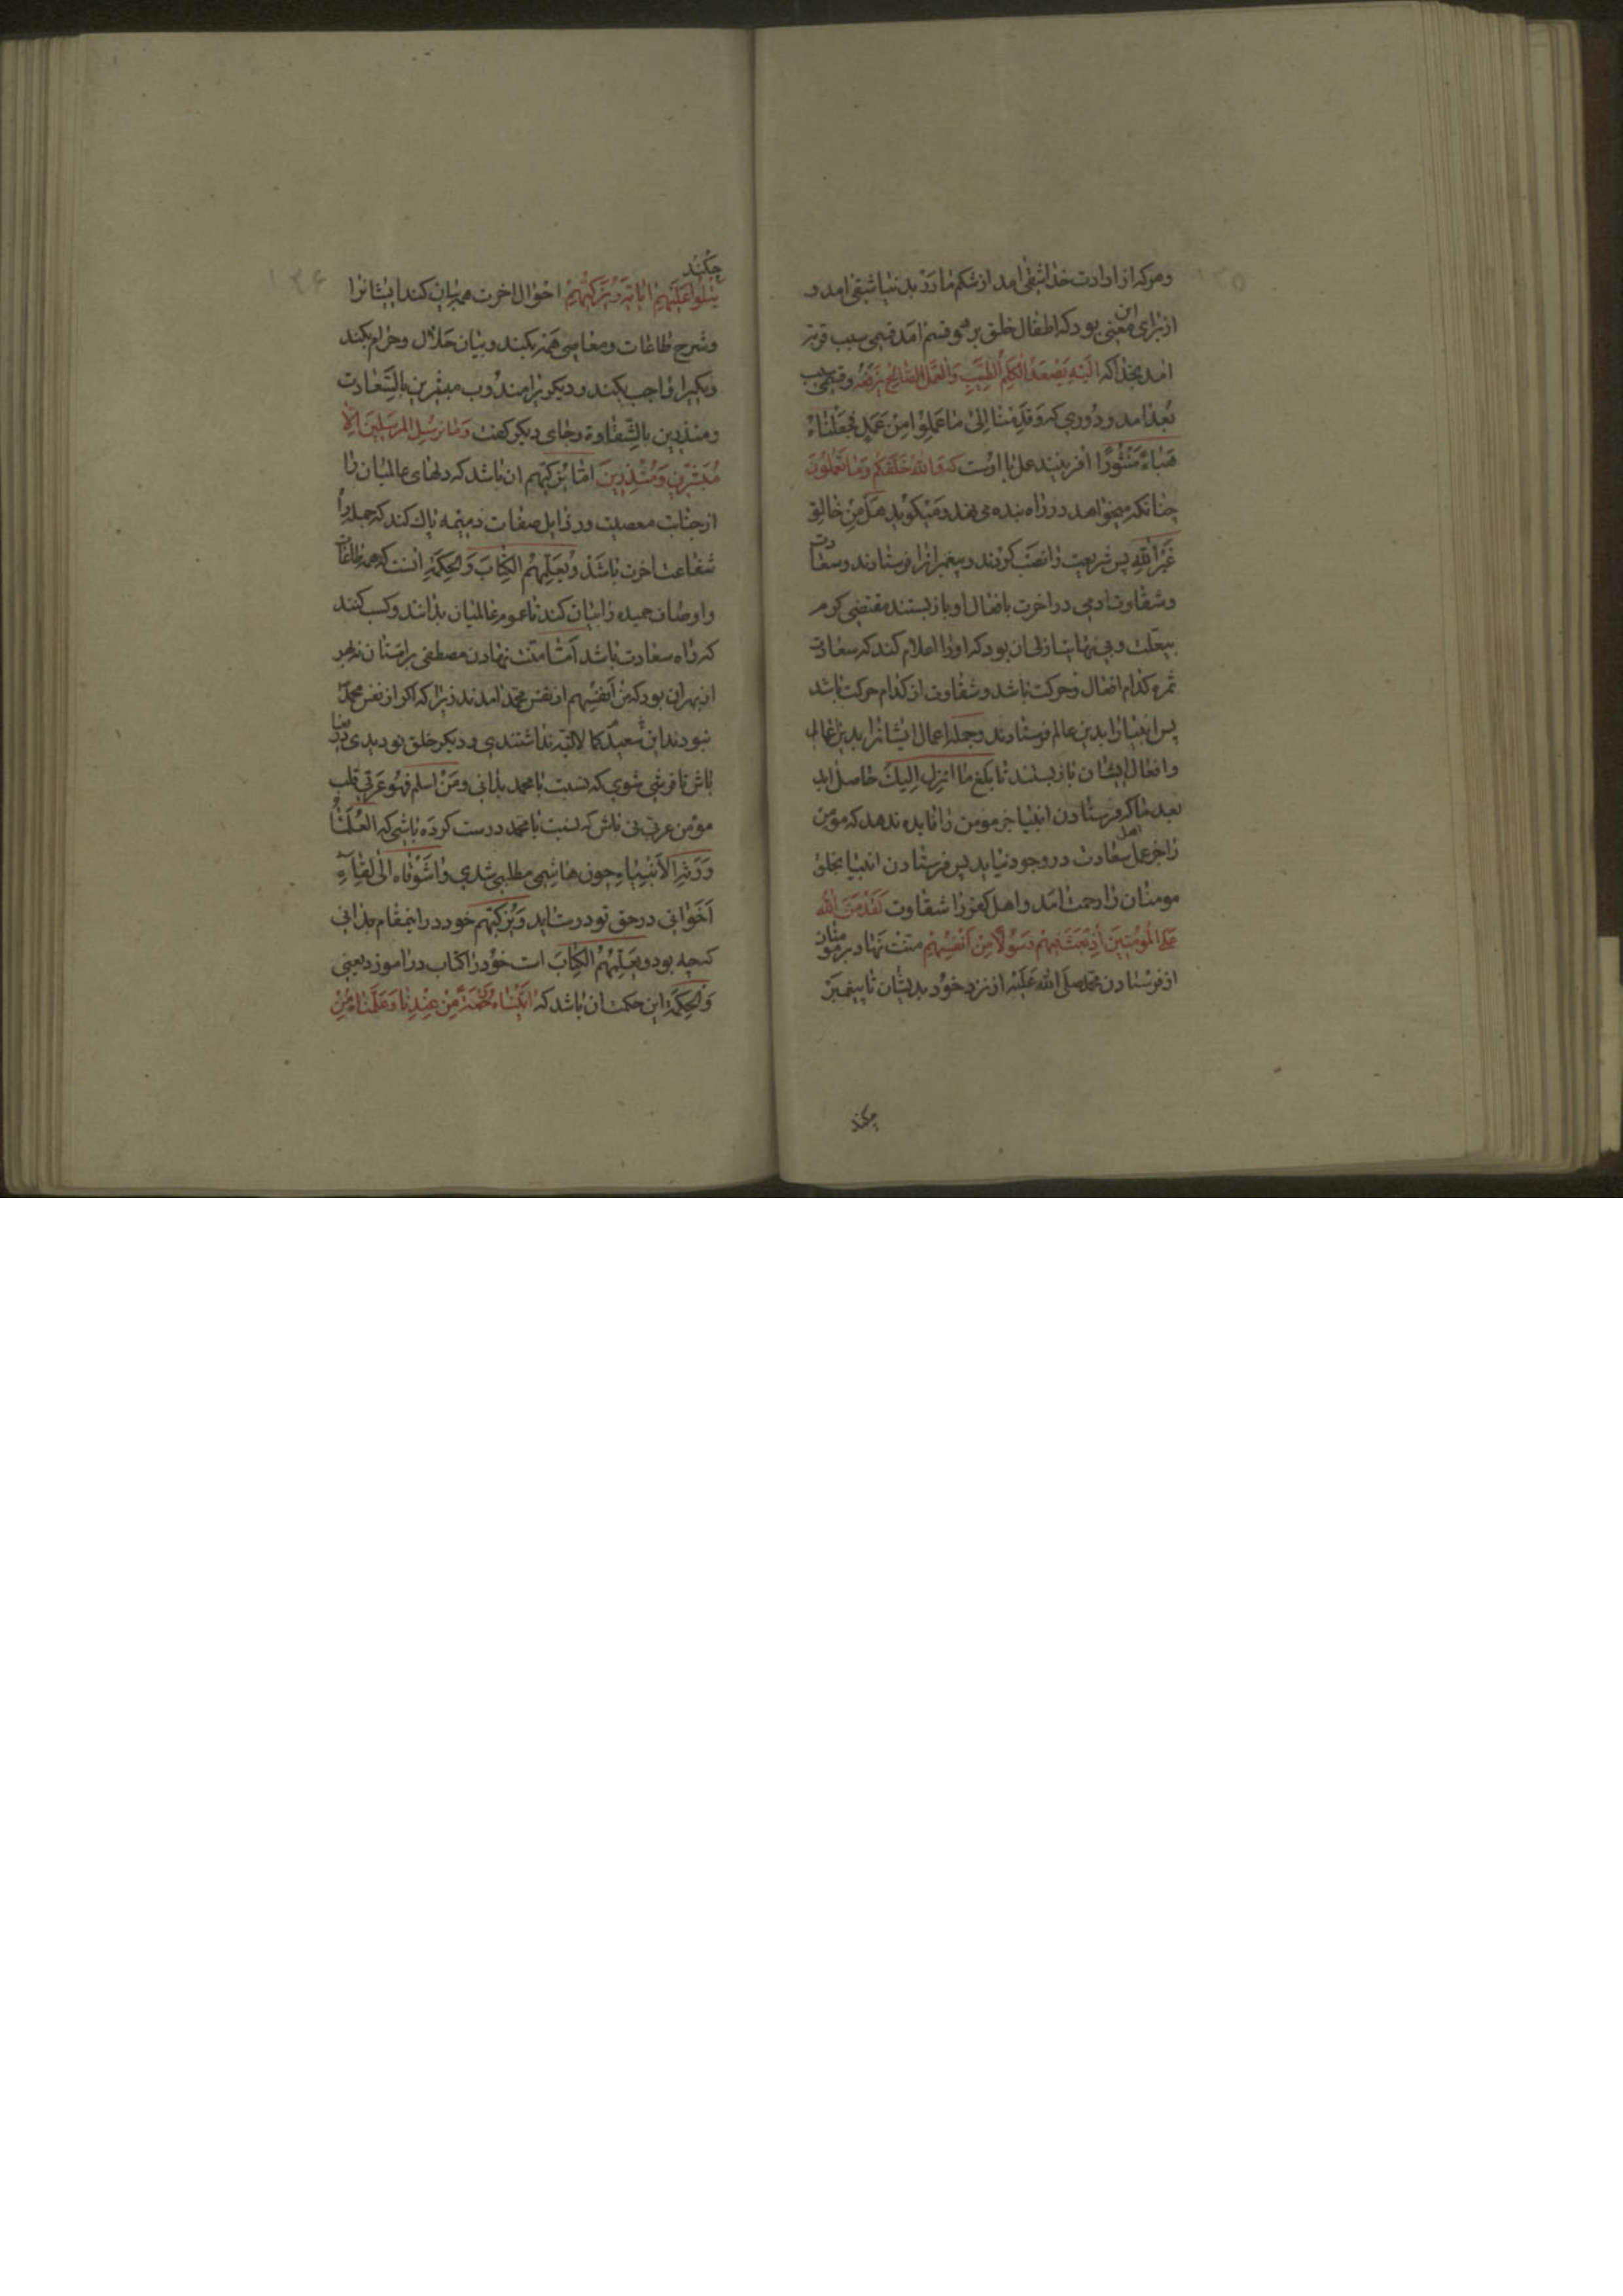 وهرکه از ارادت خدا شقی امد از شکم مادر بدنیا شقی امد و
از برای این معنی بود که اطفال خلق بر دو قسم امد قسمی سبب قربت
امد بخدا که الیه یصعد الکلم الطیب والعمل الصالح یرفعه وقسمی سبب
بعد امد و دوری که وقدمنا الی ما عملوا من عمل فجعلناه
هباء منثورا افریننده عمل ما اوست که والله خلقکم وما تعملون
چنانکه میخواهد در راه بنده می نهد و میگوید هل من خالق
غیر الله پس شریعت را نصب کردند و پیغمبرانرا فرستادند و سعادت
وشقاوت ادمی در اخرت بافعال او باز بستند مقتضی کرم
بیعلت و بی نهایت ازلی ان بود که او را اعلام کند که سعادت
ثمره کدام افعال و حرکت باشد و شقاوت از کدام حرکت باشد
پس انبیا را بدین عالم فرستادند و جمله اعمال ایشانرا بدین عالم
وافعال ایشان باز بستند تا بلغ ما انزل الیک حاصل اید
بعد ما که فرستادن انبیا جز مومن را فایده ندهد که مومن
را جز عمل اهل سعادت در وجود نیاید پس فرستادن انبیا بخلق
مومنان را رحمت امد و اهل کفر را شقاوت لقد من الله
علی المومنین اذ بعث فیهم رسولا من انفسهم منت نهاد بر مومنان
از فرستادن محمد صلی الله علیه از نزد خود بدیشان تا پیغمبر
چکند
چکند
یتلوا علیهم ایاته ویزکیهم احوال اخرت همه بیان کند ایشانرا
وشرح طاعات و معاصی همه بکند و بیان حلال و حرام بکند
ویکیرا واجب بکند و دیگریرا مندوب مبشرین بالسعادت
ومنذرین بالشقاوة و جای دیکر کفت وما نرسل المرسلین الا
مبشرین ومنذرین اما یزکیهم ان باشد که دلهای عالمیان را
از جنابت معصیت و رذایل صفات ذمیمه پاک کند که جمله را
شفاعت اخرت باشد و یعلمهم الکتاب والحکمة انست که همه طاعات
واوصاف حمیده را بیان کند تا عموم عالمیان بدانند و کسب کنند
که راه سعادت باشد اما منت نهادن مصطفی بر امتان
از بهر ان بود که من انفسهم از نفس محمد امدند زیرا که اکر از نفس محمد
نبودند این سعید کمالاتیه نداشتندی و دیکر خلق بودندی
باش تا قرشی شوی که نسبت با محمد بدانی و من اسلم فهو عربی قلب
مؤمن عربی نی باش که نسبت با محمد درست کرده باشی که العلماء
ورثة الانبیاء چون هاشمی مطلبی شدی واشوقاه الی لقاء
اخوانی در حق تو درست اید ویزکیهم خود در این مقام بدانی
که چه بود و یعلمهم الکتاب ات خود را کتاب دراموزد یعنی
والحکمة این حکمت ان باشد که اتیناه رحمة من عندنا وعلمناه من